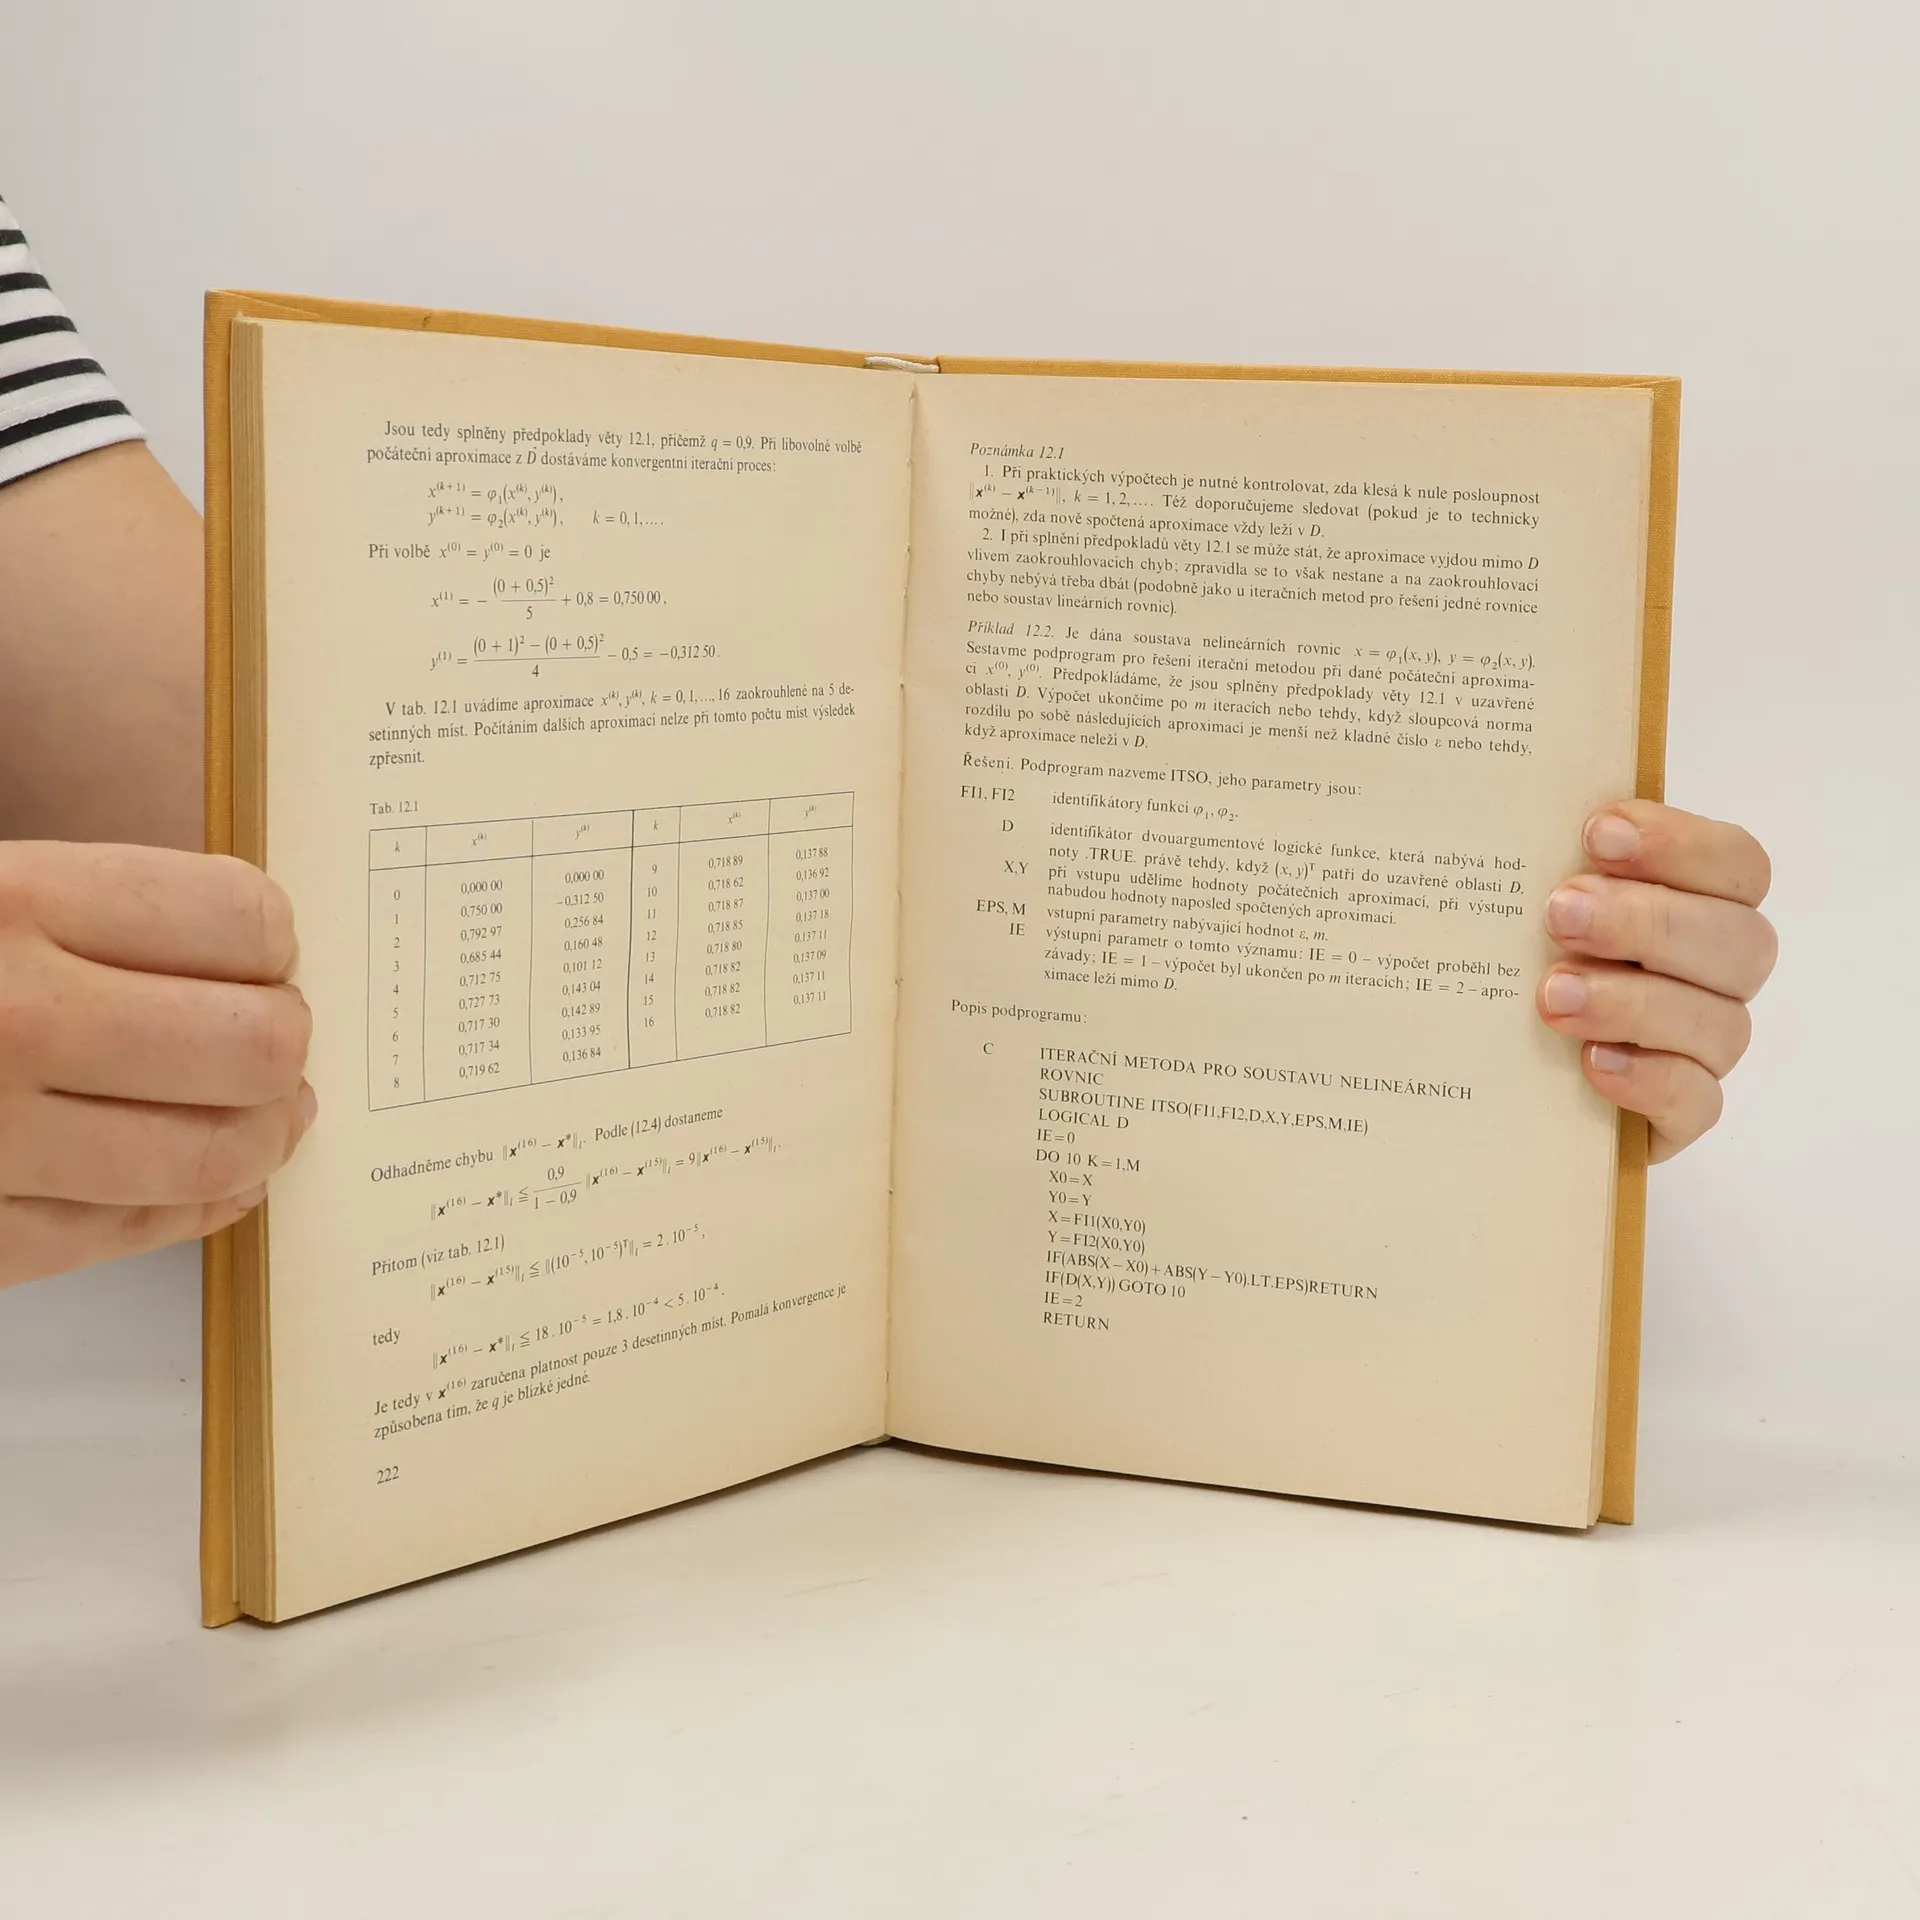 Jsou tedy splněny předpoklady věty 12.1, přičemž q = 0,9. Při libovolné volbě
počáteční aproximace z D dostáváme konvergentní iterační proces:
x⁽ᵏ⁺¹⁾ = φ₁(x⁽ᵏ⁾, y⁽ᵏ⁾),
y⁽ᵏ⁺¹⁾ = φ₂(x⁽ᵏ⁾, y⁽ᵏ⁾), k = 0, 1, ... .
Při volbě x⁽⁰⁾ = y⁽⁰⁾ = 0 je
x⁽¹⁾ = − (0 + 0,5)² / 5 + 0,8 = 0,750 00,
y⁽¹⁾ = (0 + 1)² − (0 + 0,5)² / 4 − 0,5 = −0,312 50.
V tab. 12.1 uvádíme aproximace x⁽ᵏ⁾, y⁽ᵏ⁾, k = 0, 1, ..., 16 zaokrouhlené na 5 de-
setinných míst. Počítáním dalších aproximací nelze při tomto počtu míst výsledek
zpřesnit.
Tab. 12.1
k x⁽ᵏ⁾ y⁽ᵏ⁾ k x⁽ᵏ⁾ y⁽ᵏ⁾
0 0,000 00 0,000 00 9 0,718 89 0,137 88
1 0,750 00 −0,312 50 10 0,718 62 0,136 92
2 0,792 97 0,256 84 11 0,718 87 0,137 00
3 0,685 44 0,160 48 12 0,718 85 0,137 18
4 0,712 75 0,101 12 13 0,718 80 0,137 11
5 0,727 73 0,143 04 14 0,718 82 0,137 09
6 0,717 30 0,142 89 15 0,718 82 0,137 11
7 0,717 34 0,133 95 16 0,718 82 0,137 11
8 0,719 62 0,136 84
Odhadněme chybu ‖x⁽¹⁶⁾ − x*‖ₗ. Podle (12.4) dostaneme
‖x⁽¹⁶⁾ − x*‖ₗ ≦ 0,9 / 1 − 0,9 ‖x⁽¹⁶⁾ − x⁽¹⁵⁾‖ₗ = 9‖x⁽¹⁶⁾ − x⁽¹⁵⁾‖ₗ.
Přitom (viz tab. 12.1)
‖x⁽¹⁶⁾ − x⁽¹⁵⁾‖ₗ ≦ ‖(10⁻⁵, 10⁻⁵)ᵀ‖ₗ = 2 . 10⁻⁵,
tedy
‖x⁽¹⁶⁾ − x*‖ₗ ≦ 18 . 10⁻⁵ = 1,8 . 10⁻⁴ < 5 . 10⁻⁴.
Je tedy v x⁽¹⁶⁾ zaručena platnost pouze 3 desetinných míst. Pomalá konvergence je
způsobena tím, že q je blízké jedné.
222
Poznámka 12.1
1. Při praktických výpočtech je nutné kontrolovat, zda klesá k nule posloupnost
‖x⁽ᵏ⁾ − x⁽ᵏ⁻¹⁾‖, k = 1, 2, ... . Též doporučujeme sledovat (pokud je to technicky
možné), zda nově spočtená aproximace vždy leží v D.
2. I při splnění předpokladů věty 12.1 se může stát, že aproximace vyjdou mimo D
vlivem zaokrouhlovacích chyb; zpravidla se to však nestane a na zaokrouhlovací
chyby nebývá třeba dbát (podobně jako u iteračních metod pro řešení jedné rovnice
nebo soustav lineárních rovnic).
Příklad 12.2. Je dána soustava nelineárních rovnic x = φ₁(x, y), y = φ₂(x, y).
Sestavme podprogram pro řešení iterační metodou při dané počáteční aproxima-
ci x⁽⁰⁾, y⁽⁰⁾. Předpokládáme, že jsou splněny předpoklady věty 12.1 v uzavřené
oblasti D. Výpočet ukončíme po m iteracích nebo tehdy, když sloupcová norma
rozdílu po sobě následujících aproximací je menší než kladné číslo ε nebo tehdy,
když aproximace neleží v D.
Řešení. Podprogram nazveme ITSO, jeho parametry jsou:
FI1, FI2 identifikátory funkcí φ₁, φ₂.
D identifikátor dvouargumentové logické funkce, která nabývá hod-
noty .TRUE. právě tehdy, když (x, y)ᵀ patří do uzavřené oblasti D.
X,Y při vstupu udělíme hodnoty počátečních aproximací, při výstupu
nabudou hodnoty naposled spočtených aproximací.
EPS, M vstupní parametry nabývající hodnot ε, m.
IE výstupní parametr o tomto významu: IE = 0 – výpočet proběhl bez
závady; IE = 1 – výpočet byl ukončen po m iteracích; IE = 2 – apro-
ximace leží mimo D.
Popis podprogramu:
C ITERAČNÍ METODA PRO SOUSTAVU NELINEÁRNÍCH
ROVNIC
SUBROUTINE ITSO(FI1,FI2,D,X,Y,EPS,M,IE)
LOGICAL D
IE=0
DO 10 K=1,M
X0=X
Y0=Y
X=FI1(X0,Y0)
Y=FI2(X0,Y0)
IF(ABS(X−X0)+ABS(Y−Y0).LT.EPS)RETURN
IF(D(X,Y)) GOTO 10
IE=2
RETURN